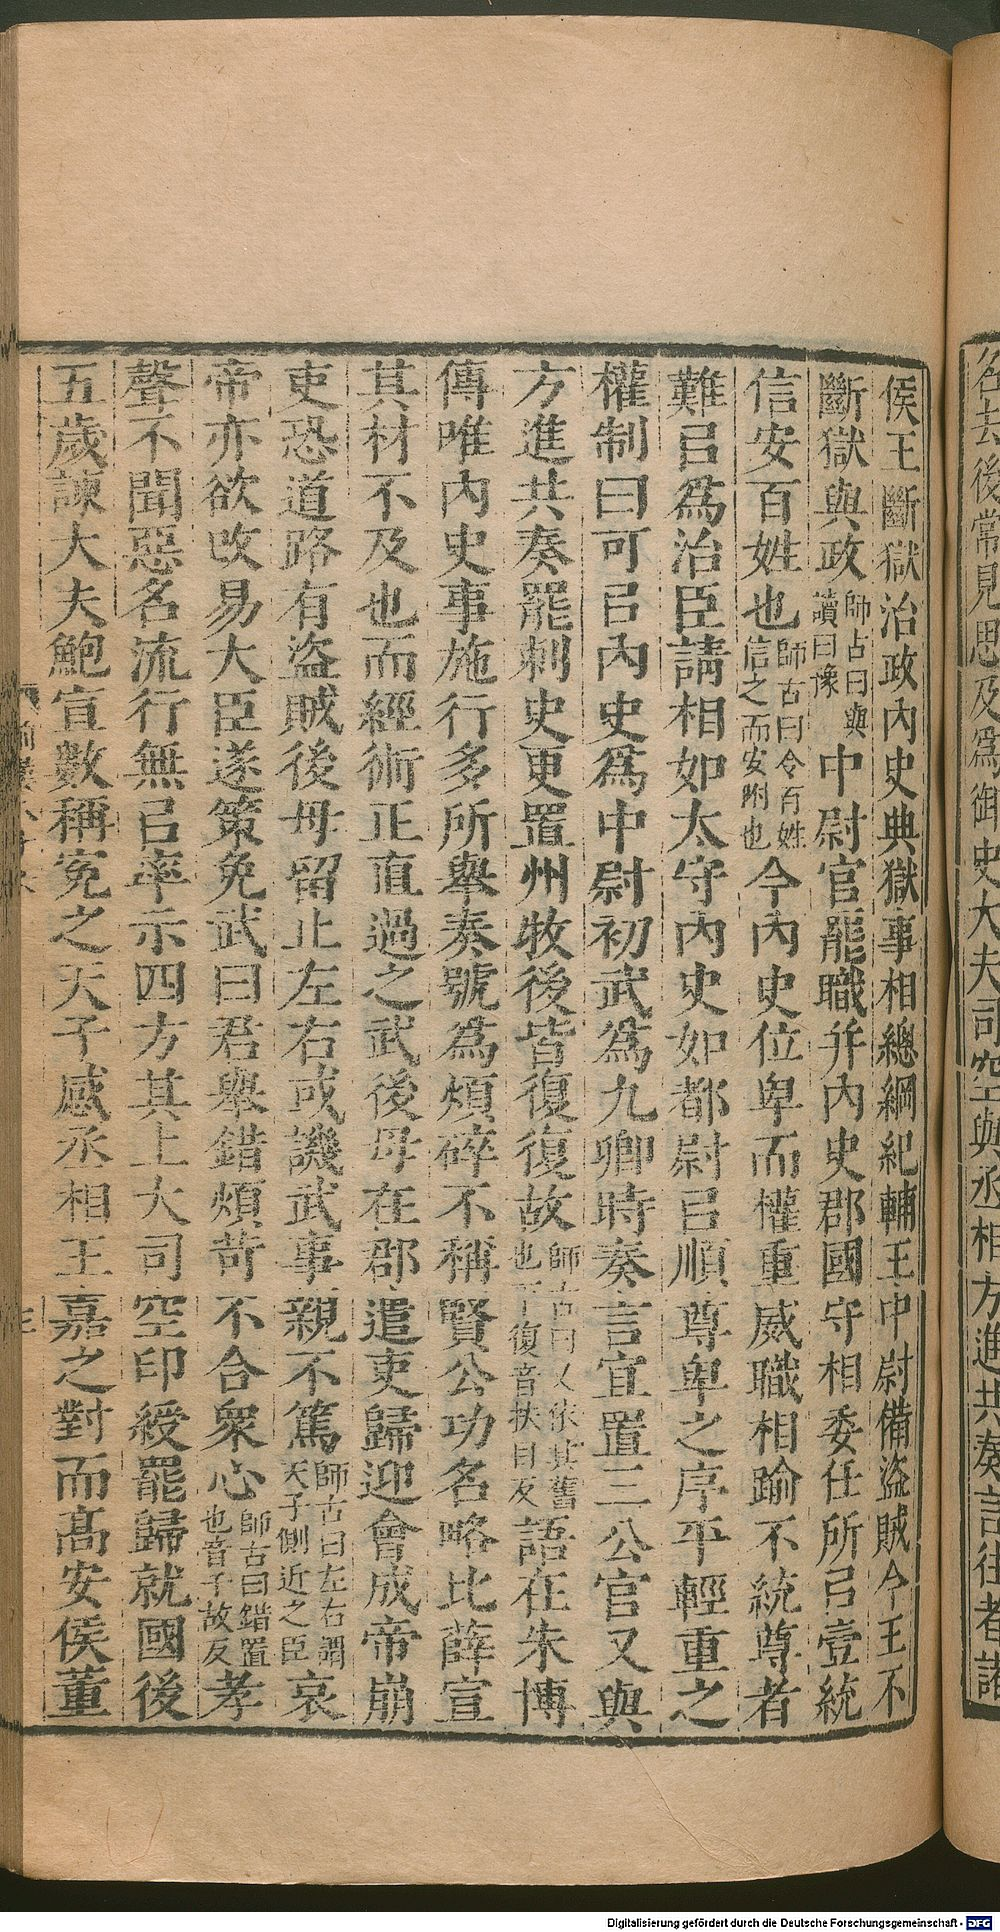 名去後常見思及爲御史大夫司空與丞相方進共奏言往者諸
侯王斷獄治政內史典獄事相總綱紀輔王中尉備盜賊今王不
斷獄與政師古曰與讀曰豫中尉官罷職并內史郡國守相委任所㠯壹統
信安百姓也師古曰令百姓信之而安附也今內史位卑而權重威職相踰不統尊者
難㠯爲治臣請相如太守內史如都尉㠯順尊卑之序平輕重之
權制曰可㠯內史爲中尉初武爲九卿時奏言宜置三公官又與
方進共奏罷刺史更置州牧後皆復復故師古曰又依其舊也下復音扶目反語在朱博
傳唯內史事施行多所舉奏號為煩碎不稱賢公功名略比薛宣
其材不及也而經術正直過之武後母在郡遣吏歸迎會成帝崩
吏恐道路有盜賊後母留止左右或譏武事親不篤師古曰左右謂天子側近之臣哀
帝亦欲改易大臣遂策免武曰君舉錯煩苛不合衆心師古曰錯置也音千故反孝
聲不聞惡名流行無㠯率示四方其上大司空印綬罷歸就國後
五歲諫大夫鮑宣數稱冤之天子感丞相王嘉之對而高安侯董
Digitalisierung gefördert durch die Deutsche Forschungsgemeinschaft - DFG